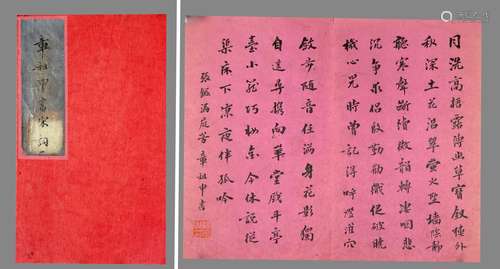 章祖申書宋詞
月洗高梧露漙幽草寶釵樓外
秋深土花沿翠螢火墜墻陰靜
聽寒聲斷續微韻轉淒咽悲
沉爭求侶殷勤勸織促破曉
機心兒時曾記得呼燈灌穴
斂步隨音任滿身花影獨
自追尋攜向華堂戲斗亭
臺小籠巧妝金今休說從
渠床下涼夜伴孤吟
張鎡滿庭芳 章祖申書